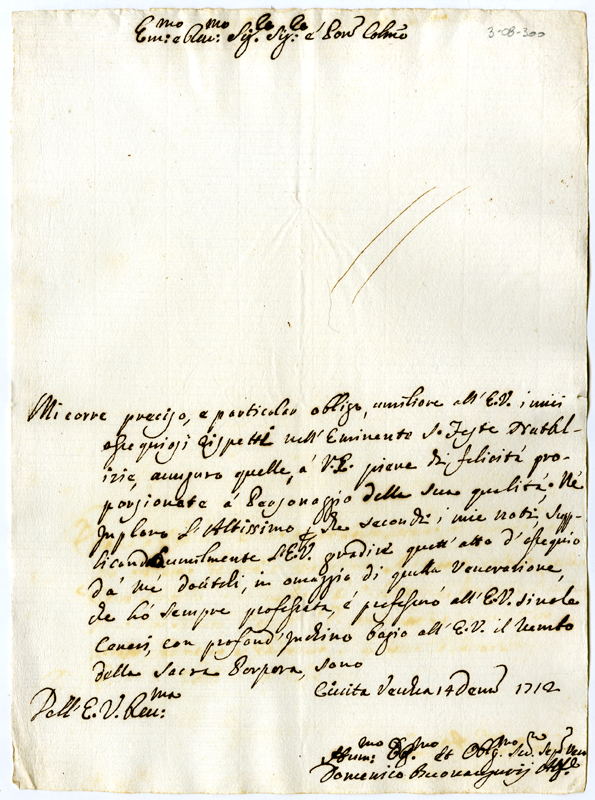 Em:mo e Rev:mo Sig:re Sig:re e Pron Colmo
3-08-300
Mi corre preciso, e particolar obligo, umiliare all'E.V. i miei
ossequiosi rispetti nell'Eminente S. Feste Natal-
izie, auguro quelle, à V.E. piene di felicità pro-
porzionate à Personaggio della sua qualità. Ne
Imploro l'Altissimo che secondi i miei voti, supp-
licando umilmente l'E.V. gradire quest'atto d'ossequio
da me doutoli, in omaggio di quella Venerazione,
che hò sempre professata, è professerò all'E.V. sin ale
Ceneri, con profond'Inchino bagio all'E.V. il lembo
della Sacra Porpora, sono
Civita Vecchia 14 Dem 1712
Dell'E.V. Rev:ma
Hum:mo et Oblig:mo
Domenico